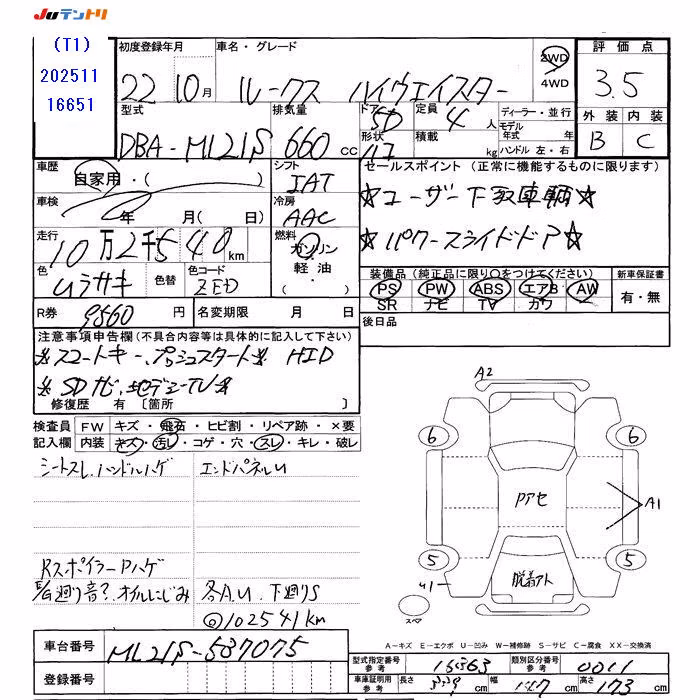 JUテントリ
(T1)
202511
16651
初度登録年月
22 10月
車名・グレード
ルークス ハイウェイスター
2WD
4WD
評価点
3.5
外装 内装
B C
型式
DBA-ML21S
排気量
660 cc
ドア 5D
形状
定員 4人
積載 kg
ディーラー・並行
モデル年式 年
ハンドル 左・右
車歴
自家用・( )
シフト
IAT
セールスポイント (正常に機能するものに限ります)
☆ユーザー下取車輌☆
☆パワースライドドア☆
車検
年 月( 日)
冷房
AAC
走行
10万2千540km
燃料
ガソリン
軽油・
色
ムラサキ
色替
色コード
ZED
装備品(純正品に限り○をつけてください)
PS PW ABS エアB AW
SR ナビ TV カワ
新車保証書
有・無
R券 9560円
名変期限 月 日
後日品
注意事項申告欄(不具合内容等は具体的に記入して下さい)
※スマートキー、プッシュスタート※ HID
※SDナビ、地デジTV※
修復歴 有〔箇所 〕
検査員記入欄
FW キズ・飛石・ヒビ割・リペア跡・×要
内装 キズ・汚レ・コゲ・穴・スレ・キレ・破レ
シートスレ、ハンドルハゲ
エンドパネルU
RスポイラーPハゲ
廻り音?、オイルにじみ
各A.U、下廻りS
◎102541km
A2
6 6
Pアセ
A1
5 5
U1
脱着アト
スペア
A-キズ E-エクボ U-凹み W-補修跡 S-サビ C-腐食 XX-交換済
車台番号 ML21S-587075
登録番号
型式指定番号 参考 16363
類別区分番号 参考 0011
車庫証明用 参考 長さ 339cm 幅 147cm 高さ 173cm